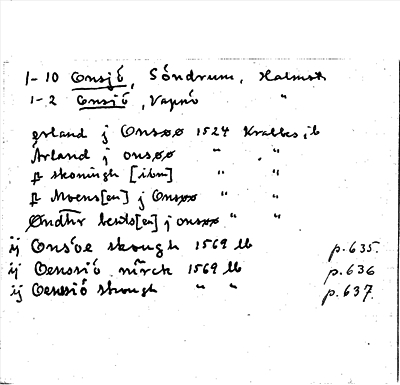 1-10 Onsjö, Söndrum, Halmst
1-2 Onsjö, Vapnö "
erland j Onsøø 1524 Kralbs, ib
Ärland j onsøø " "
p skoningh [ibm] " "
p Moens[en] j Onsøø " "
j onsøø " "
ij Onsöe skough 1569 lb p.635.
ij Oenssiö mrck 1569 lb p.636
ij Oenssiö skough " " p.637.